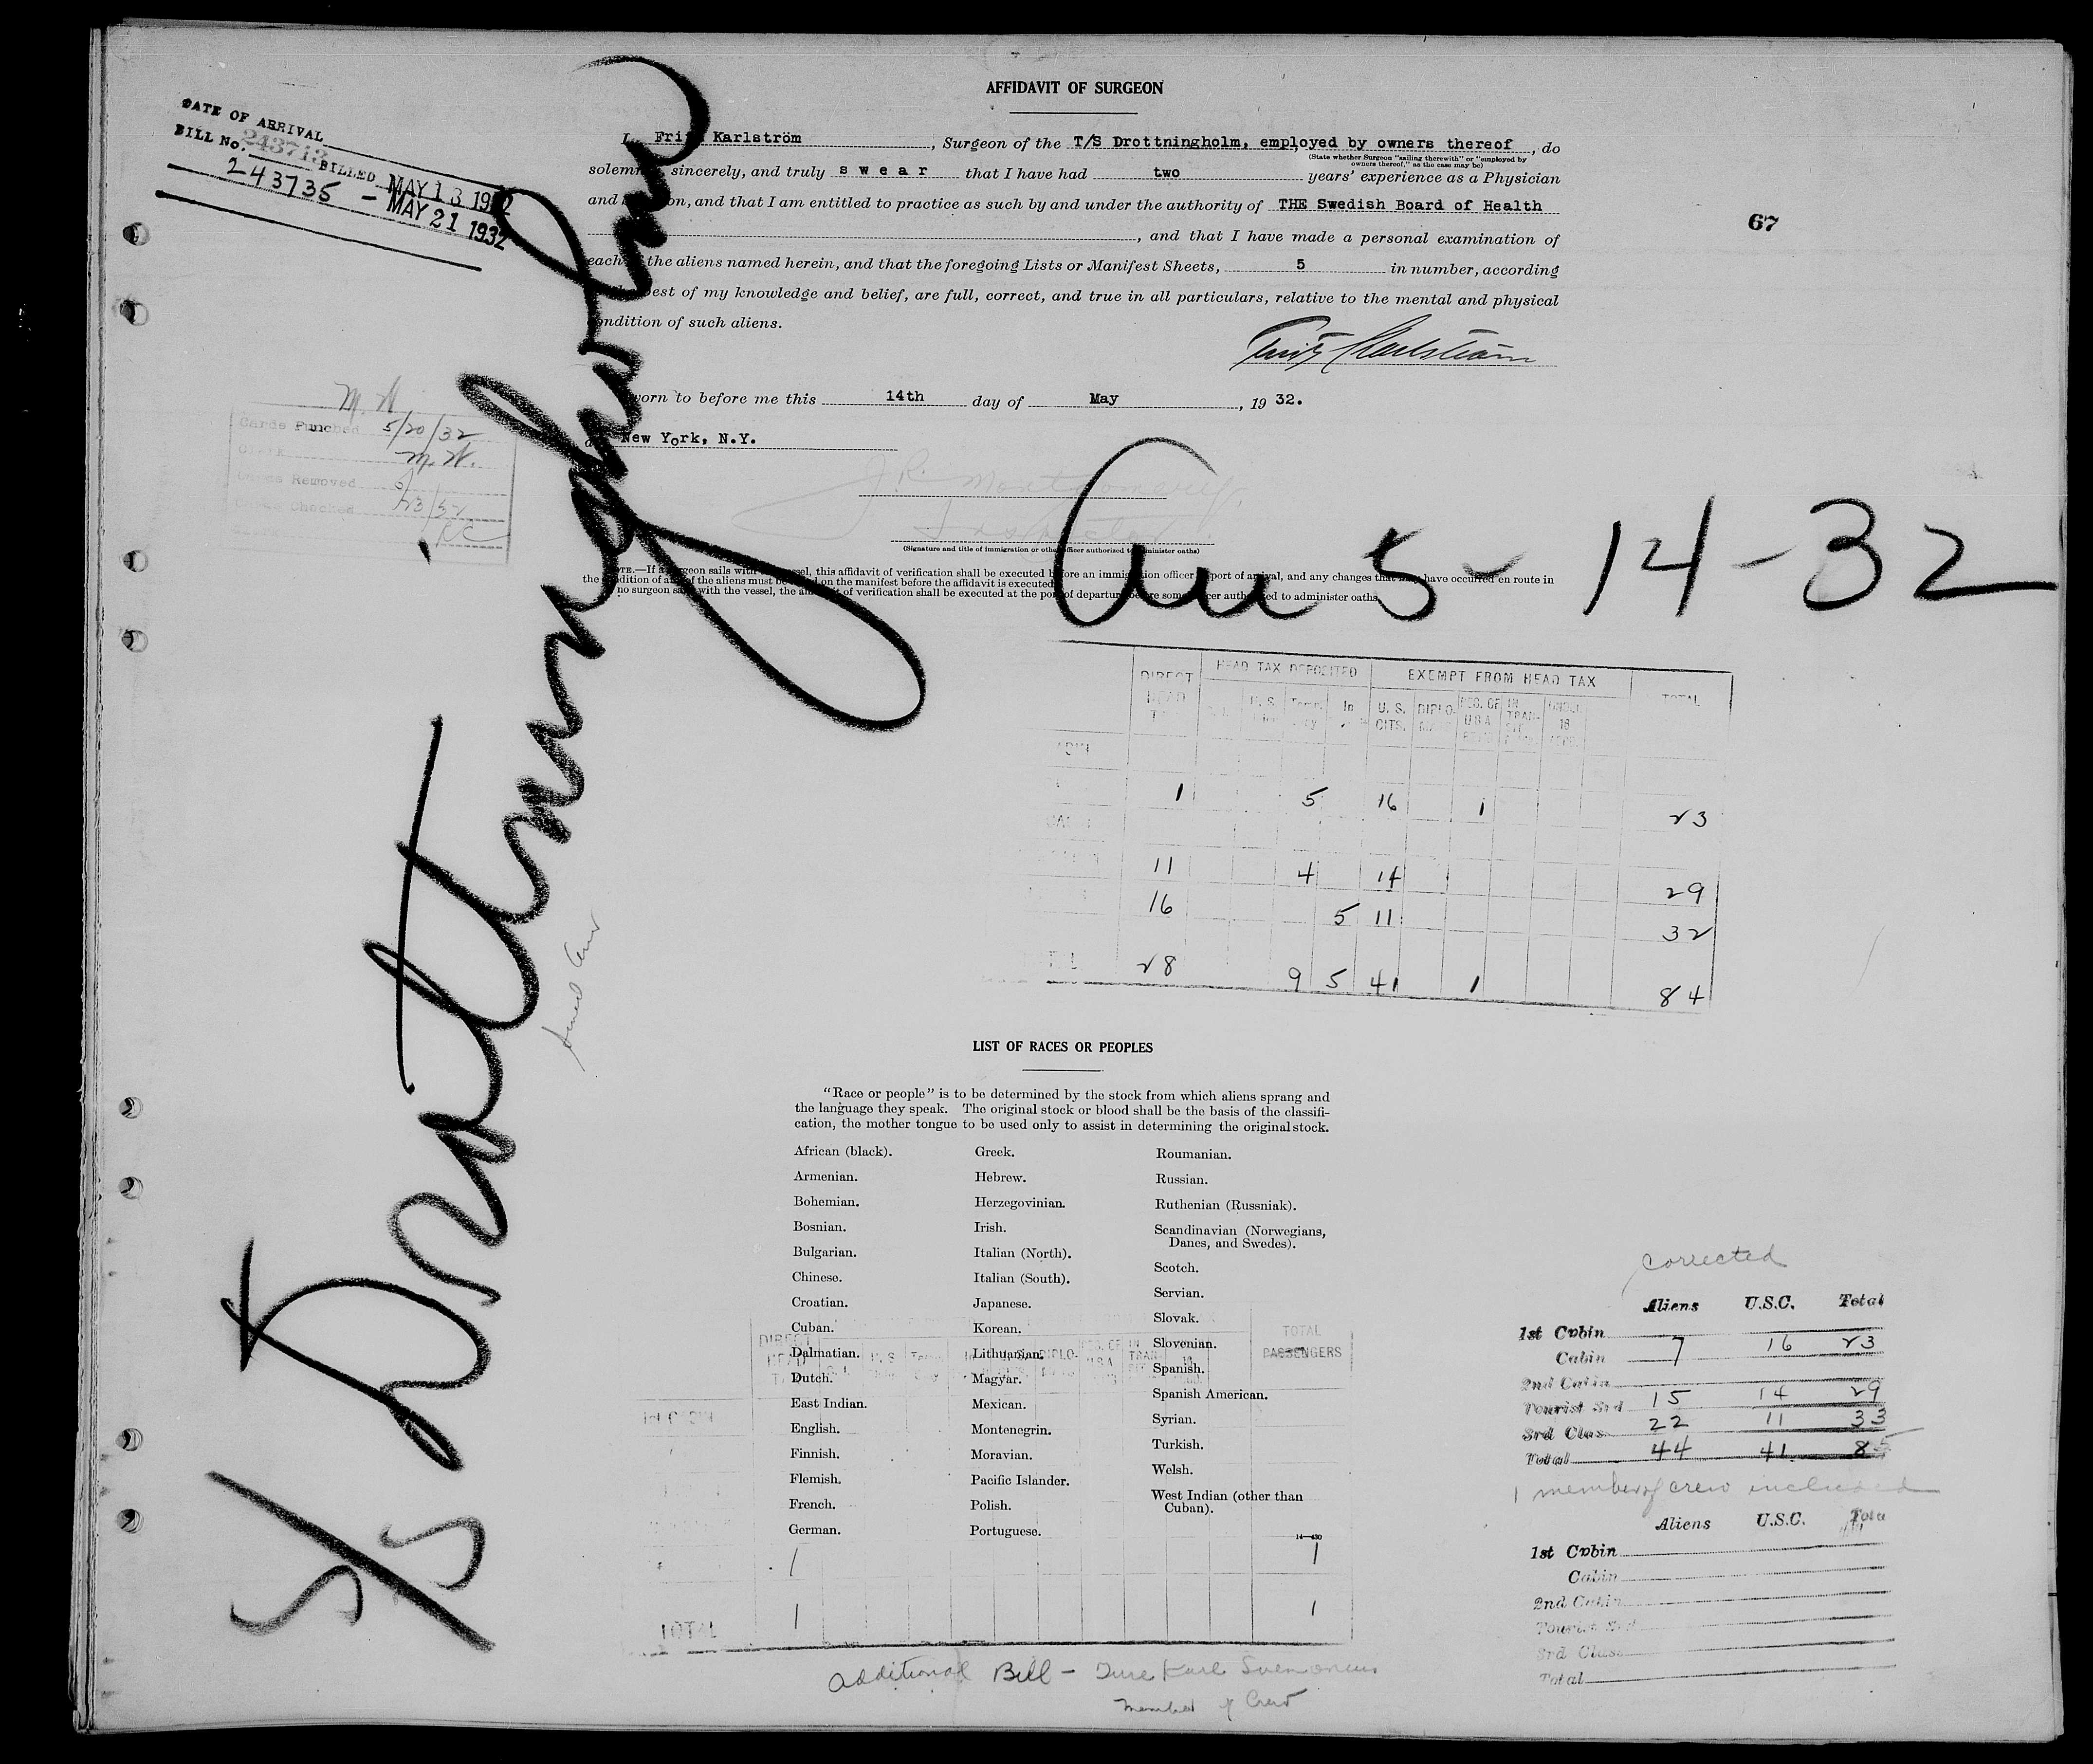 AFFIDAVIT OF SURGEON
DATE OF ARRIVAL
BILL No. 243713 BILLED MAY 13 1932
243735 - MAY 21 1932
I, Fritz Karlström, Surgeon of the T/S Drottningholm, employed by owners thereof, do
(State whether Surgeon "sailing therewith" or "employed by
owners thereof," as the case may be)
solemnly, sincerely, and truly swear that I have had two years' experience as a Physician
and Surgeon, and that I am entitled to practice as such by and under the authority of THE Swedish Board of Health
, and that I have made a personal examination of
each of the aliens named herein, and that the foregoing Lists or Manifest Sheets, 5 in number, according
best of my knowledge and belief, are full, correct, and true in all particulars, relative to the mental and physical
condition of such aliens.
67
Fritz Karlström
Sworn to before me this 14th day of May, 19 32.
at New York, N.Y.
M. W.
Cards Punched 5/20/32
Clerk M. W.
Cards Removed
Cards Checked
J. R. Montgomery
Inspector
(Signature and title of immigration or other officer authorized to administer oaths)
NOTE.—If a surgeon sails with the vessel, this affidavit of verification shall be executed before an immigration officer port of arrival, and any changes that may have occurred en route in
the condition of any of the aliens must be on the manifest before the affidavit is executed
no surgeon sails with the vessel, the affidavit of verification shall be executed at the port of departure before some officer authorized to administer oaths.
S/S Drottningholm
Arr 5-14-32
DIRECT HEAD TAX HEAD TAX DEPOSITED EXEMPT FROM HEAD TAX TOTAL
U. S. In U. S. CITS. DIPLO- U S A IN TRAN- 16
1 5 16 1 23
11 4 14 29
16 5 11 32
28 9 5 41 1 84
LIST OF RACES OR PEOPLES
"Race or people" is to be determined by the stock from which aliens sprang and
the language they speak. The original stock or blood shall be the basis of the classifi-
cation, the mother tongue to be used only to assist in determining the original stock.
African (black).
Armenian.
Bohemian.
Bosnian.
Bulgarian.
Chinese.
Croatian.
Cuban.
Dalmatian.
Dutch.
East Indian.
English.
Finnish.
Flemish.
French.
German.
Greek.
Hebrew.
Herzegovinian.
Irish.
Italian (North).
Italian (South).
Japanese.
Korean.
Lithuanian.
Magyar.
Mexican.
Montenegrin.
Moravian.
Pacific Islander.
Polish.
Portuguese.
Roumanian.
Russian.
Ruthenian (Russniak).
Scandinavian (Norwegians,
Danes, and Swedes).
Scotch.
Servian.
Slovak.
Slovenian.
Spanish.
Spanish American.
Syrian.
Turkish.
Welsh.
West Indian (other than
Cuban).
14—430
DIRECT HEAD TOTAL PASSENGERS
1 1
TOTAL 1 1
Additional Bill -
Member of Crew
corrected
Aliens U.S.C. Total
1st Cabin
Cabin 7 16 23
2nd Cabin
Tourist 3rd 15 14 29
3rd Class 22 11 33
Total 44 41 85
1 member of crew included
Aliens U.S.C. Total
1st Cabin
Cabin
2nd Cabin
Tourist 3rd
3rd Class
Total